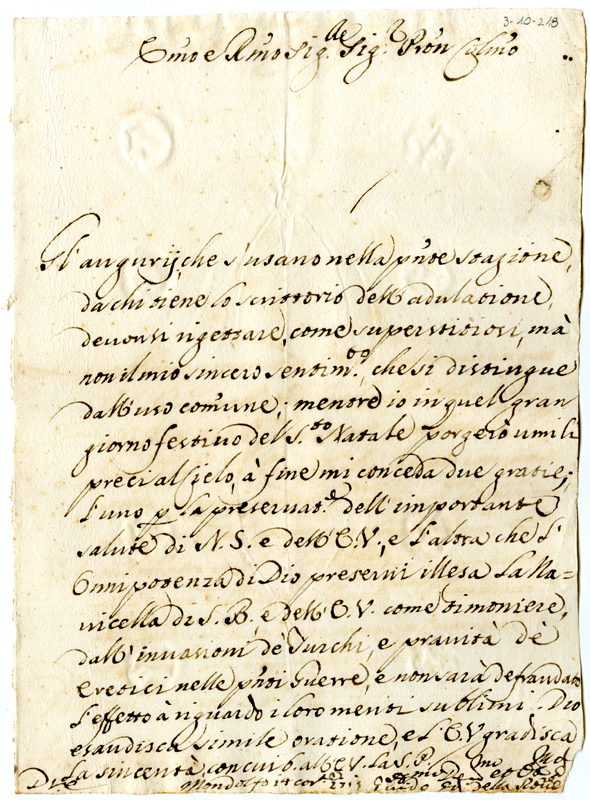 3-10-218
Emo e Rmo Sig.re Sig.r Pron Colmo
Gl'augurij, che s'usano nella pnte stagione,
da chi tiene lo scrittorio dell'adulatione,
devonsi rigettare, come superstitiosi, mà
non il mio sincero sentim.to, che si distingue
dall'uso comune; mentre io in quel gran
giorno festivo del S.to Natale porgerò umili
preci al Cielo, à fine mi conceda due gratie;
l'uno p la preservat.e dell'importante
salute di N. S. e dell'E.V., e l'altra che l'
Onnipotenza di Dio preservi illesa la Na=
vicella di S. B. e dell'E.V. come timoniere,
dall'invasioni de Turchi, e pravità de
Eretici nelle pnti Guerre, e non sarà defraudato
l'effetto à riguardo i loro meriti sublimi. Dio
esaudisca simile oratione, e l'E.V. gradisca
la sincerità, con cui b. all'E.V. la S.P.
Di V.E.
Mondolfo
Guido della Rovere